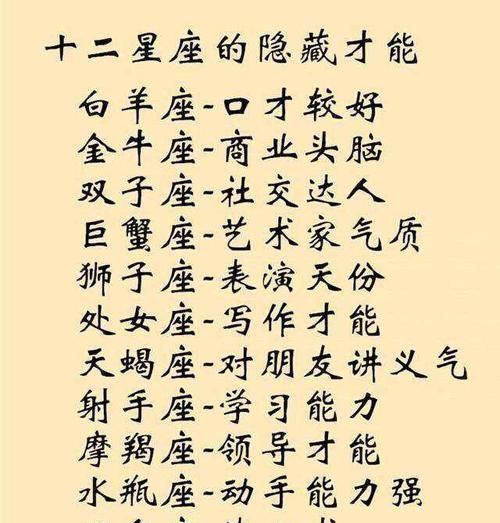 十二星座的隐藏才能
白羊座-口才较好
金牛座-商业头脑
双子座-社交达人
巨蟹座-艺术家气质
狮子座-表演天份
处女座-写作才能
天蝎座-对朋友讲义气
射手座-学习能力
摩羯座-领导才能
水瓶座-动手能力强